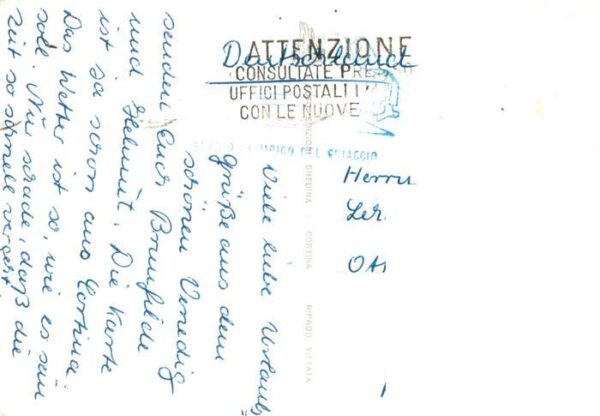 Viele liebe Urlaubs
grüße aus dem
schönen Venedig
senden Euch Brunhilde
und Helmut. Die Karte
ist ja schon aus Cortina.
Das Wetter ist so, wie es sein
soll. Nur schade, daß die
Zeit so schnell vergeht.
Deutschland
ATTENZIONE
CONSULTATE PRE
UFFICI POSTALI I
CON LE NUOVE
STADIO OLIMPICO DEL GHIACCIO
Herrn
Ler.
GHEDINA - CORTINA RIPROD. VIETATA